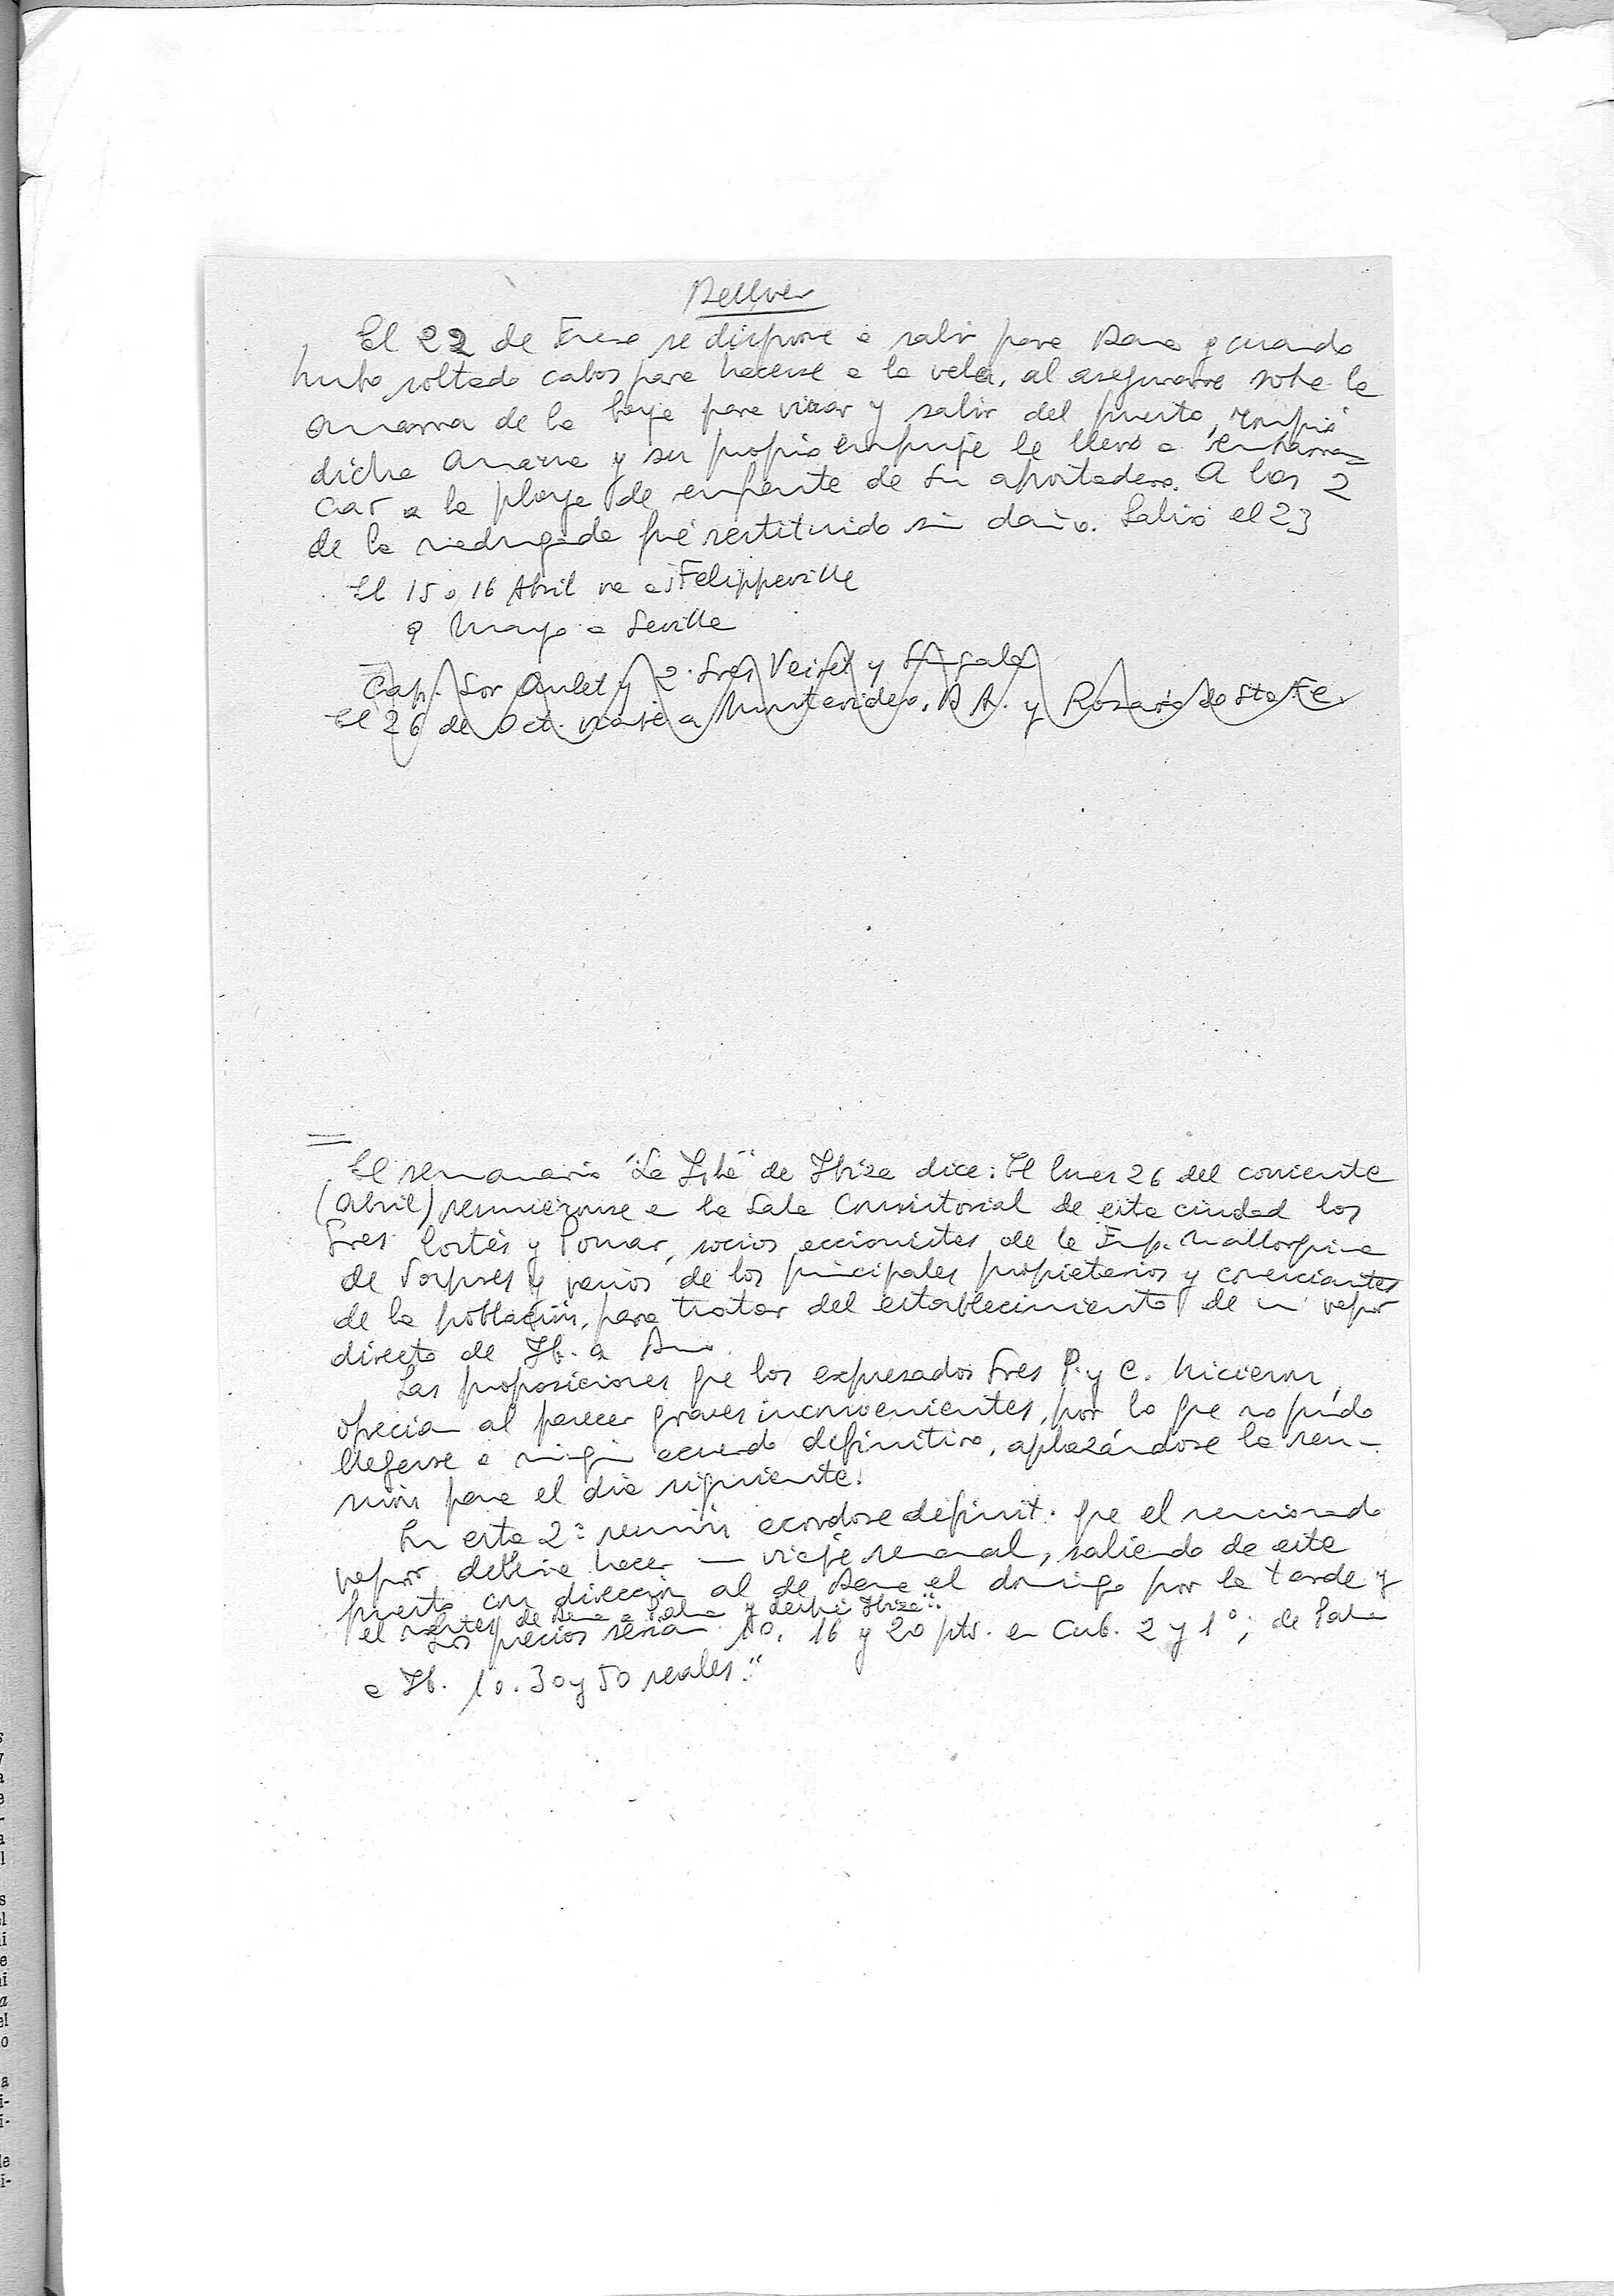 Bellver
El 22 de Enero se dispone a salir para Bana y cuando
hubo soltado cabos para hacerse a la vela, al asegurarse sobre la
amarra de la boya para virar y salir del puerto, rompió
dicha amarra y su propio empuje le llevó a embarran=
car a la playa de enfrente de su apostadero. A las 2
de la madrugada fué restituido sin daño. Salió el 23
El 15 o 16 Abril va a Felippeville
9 Mayo a Seville
Cap. Sor Aulet y 2. Sres y
El 26 de Oct. viaje a Montevideo, B A. y Rosario de Sta Fe.
El semanario "La Isla" de Ibiza dice: El lunes 26 del corriente
(Abril) reuniéronse e la Sala Consistorial de esta ciudad los
Sres Cortés y Pomar, socios accionistas de la Emp. Mallorquina
de Vapores y varios de los principales propietarios y comerciantes
de la población, para tratar del establecimiento de un vapor
directo de Ib. a Bna.
Las proposiciones que los expresados Sres P. y C. hicieron,
ofrecian al parecer graves inconvenientes, por lo que no pudo
llegarse a ningún acuerdo definitivo, aplazándose la reu-
nión para el dia siguiente.
En esta 2ª reunión acordose definit. que el mencionado
vapor debería hacer un viaje semanal, saliendo de este
puerto con dirección al de Bana el domingo por la tarde y
el martes de Bana a Palma y después Ibiza".
Los precios serían 10, 16 y 20 pts. en Cub. 2 y 1ª; de Palma
a Ib. 10. 30 y 50 reales."